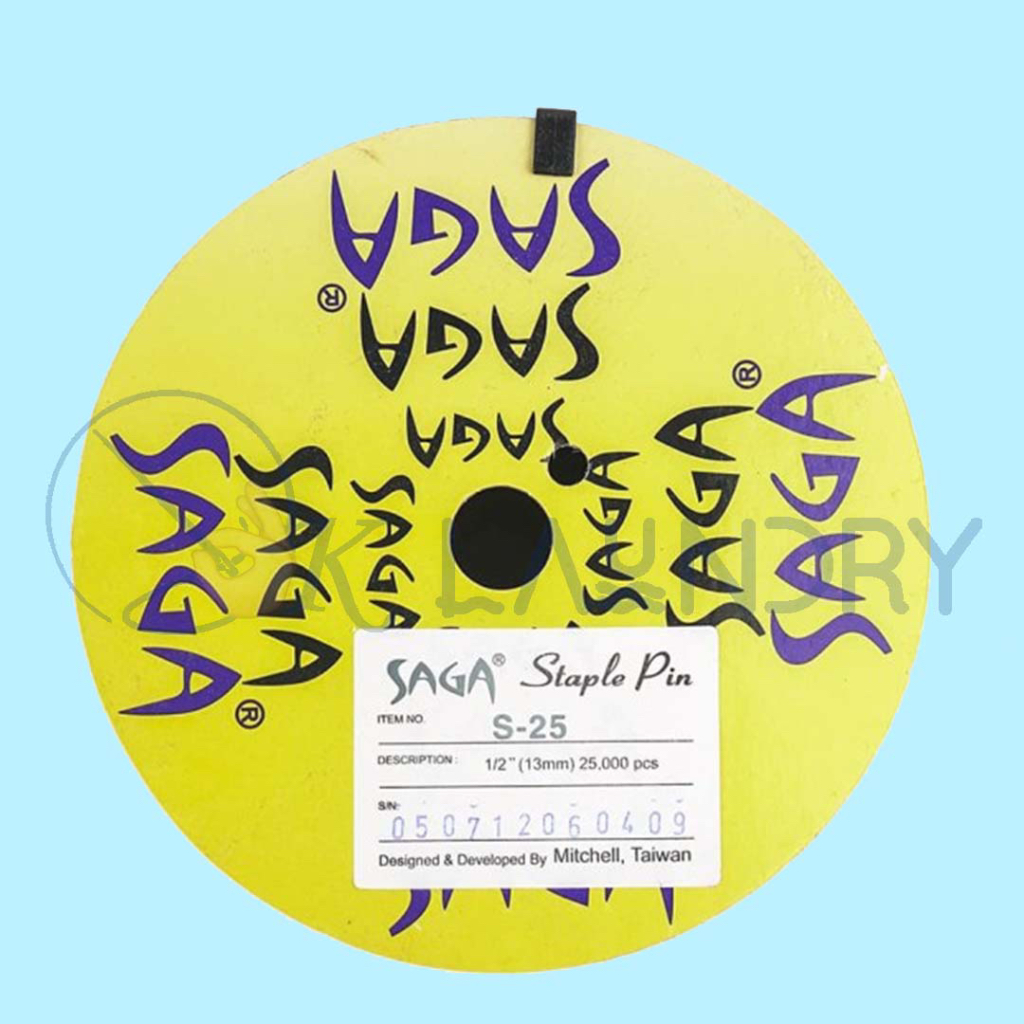 SAGA
®
SAGA
SAGA
SAGA
SAGA
SAGA
®
SAGA
SAGA
SAGA
®
K LAUNDRY
SAGA® Staple Pin
ITEM NO. S-25
DESCRIPTION : 1/2" (13mm) 25,000 pcs
S/N: 050712060409
Designed & Developed By Mitchell, Taiwan